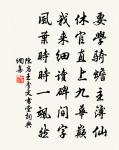 要學騎蟾主溥仙
休官直上九華巔
我來細讀碑間字
風葉時時一颯然
陳岩王季文書堂詞典
網集